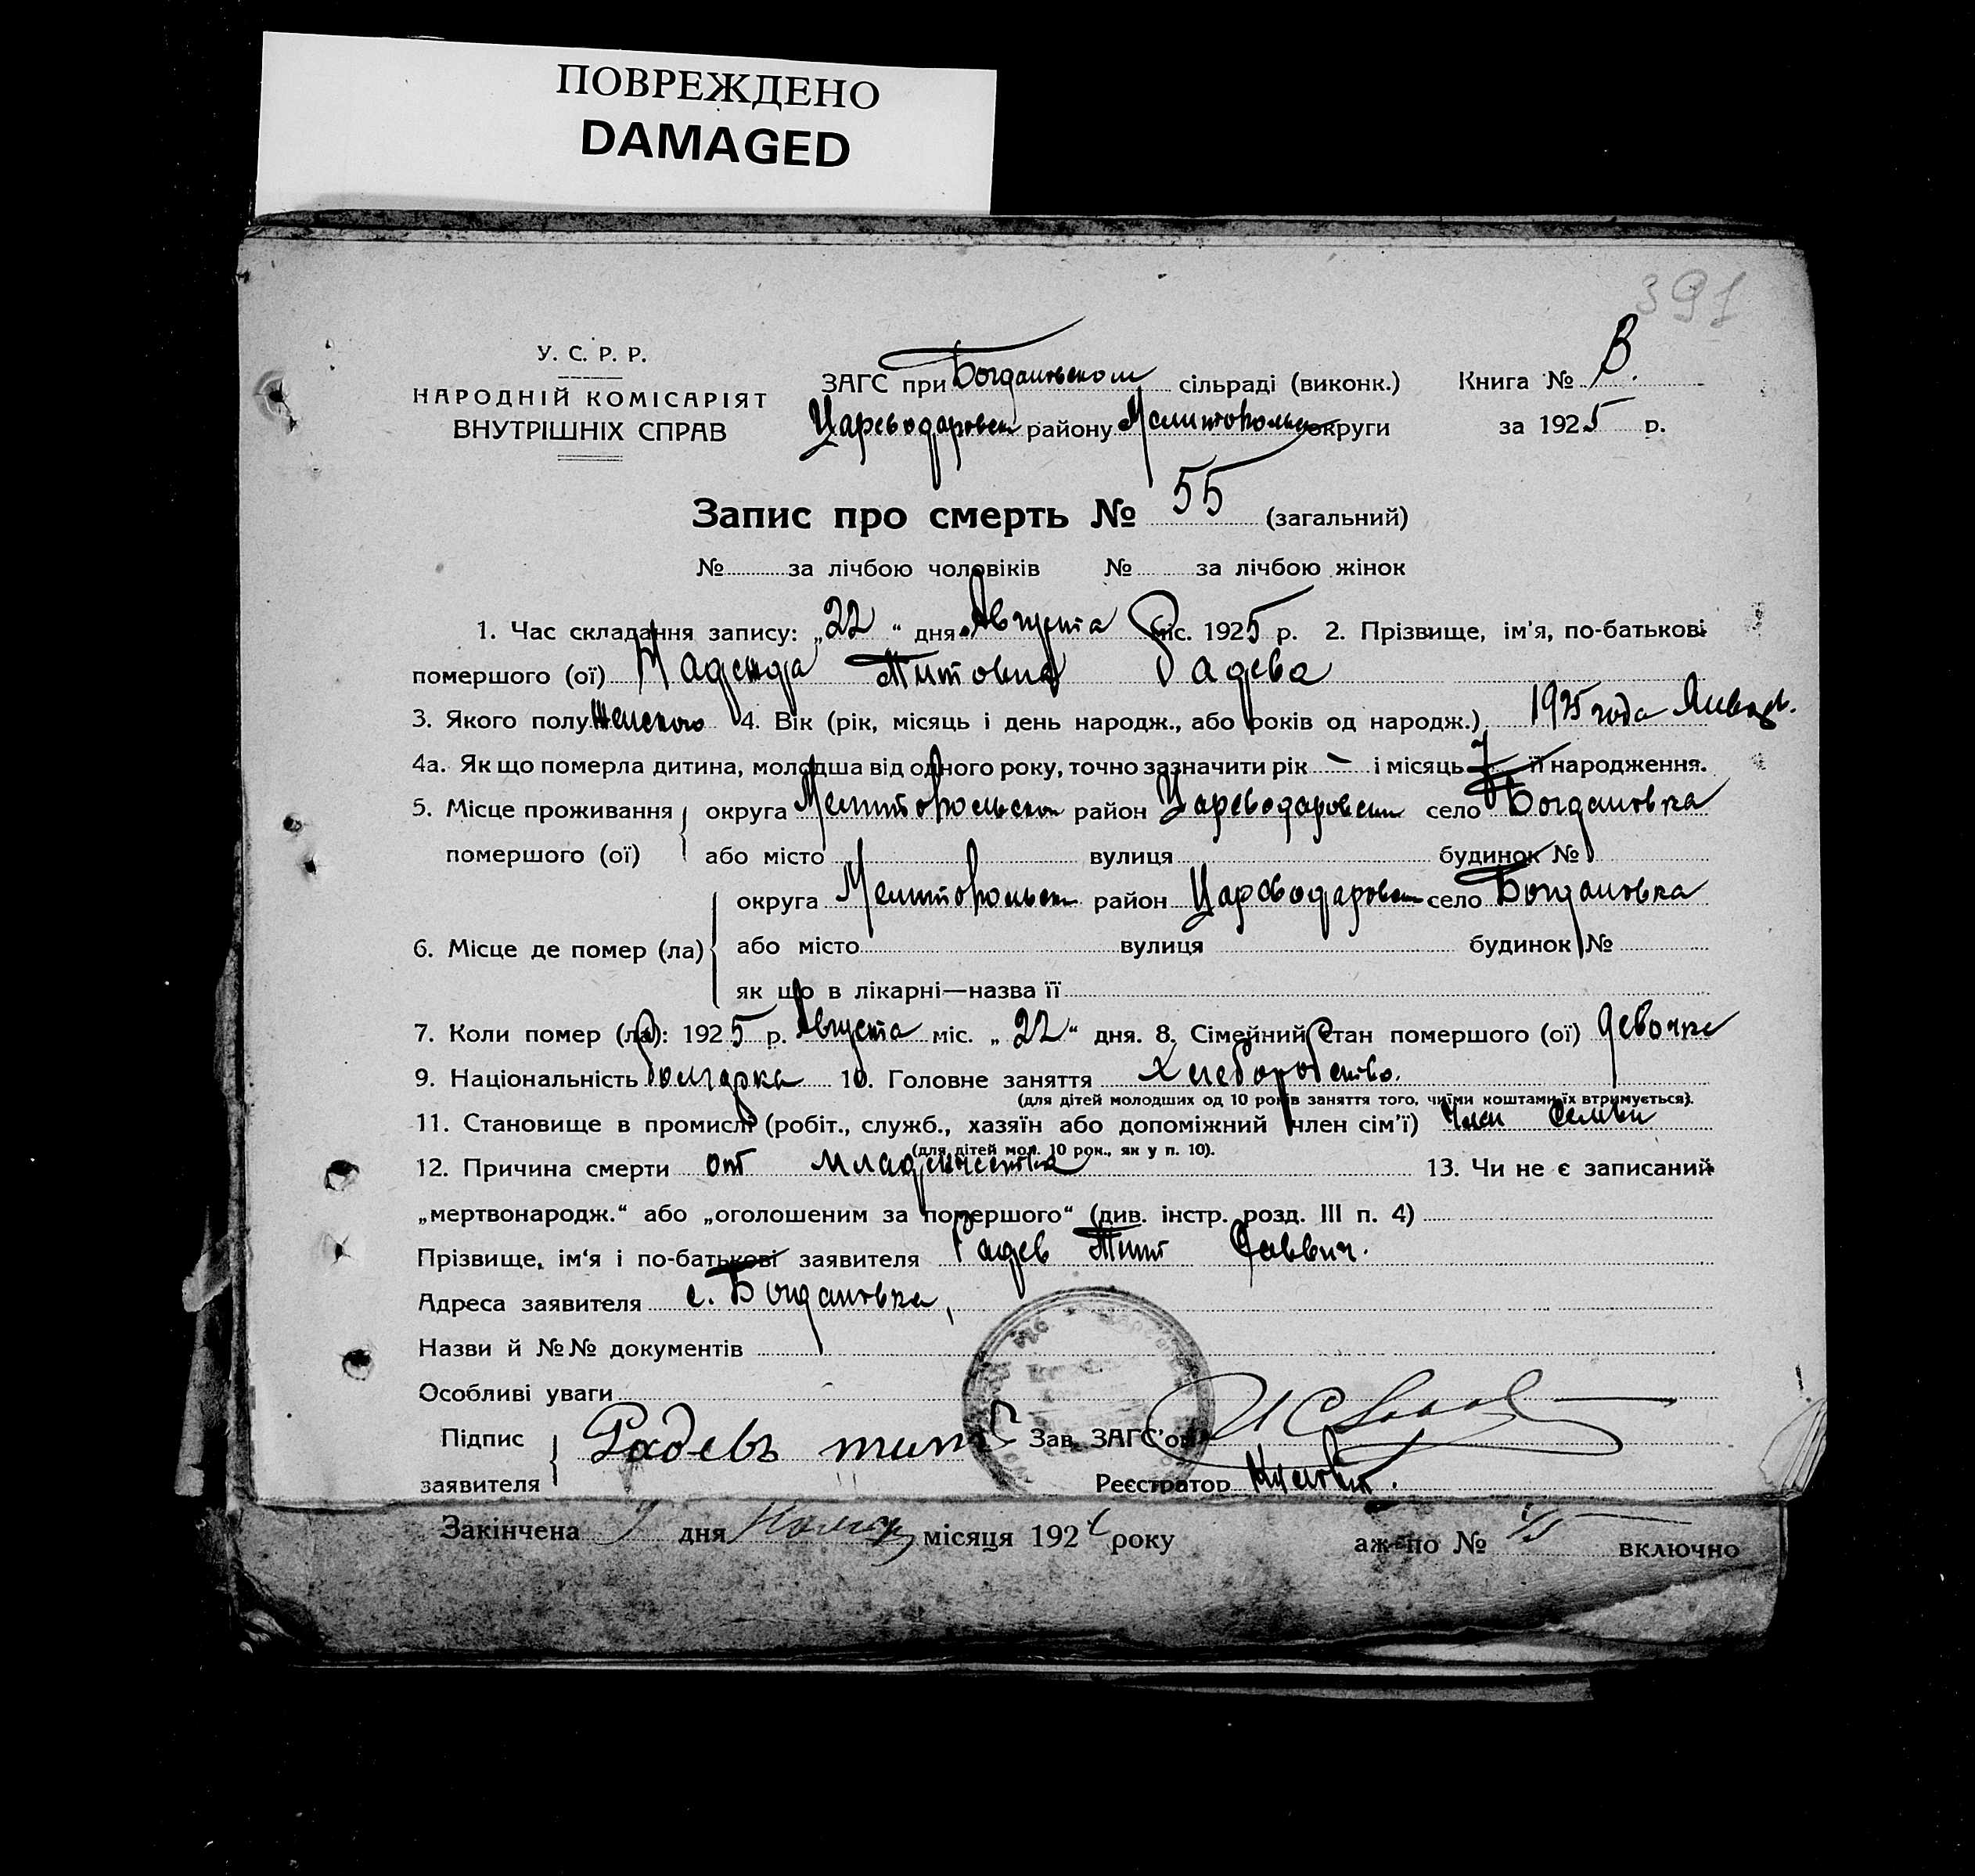 ПОВРЕЖДЕНО
DAMAGED
391
У. С. Р. Р.
НАРОДНІЙ КОМІСАРІЯТ
ВНУТРІШНІХ СПРАВ
ЗАГС при Богдановском сільраді (виконк.)
Цареводаровск району Мелитопольск округи
Книга № В.
за 1925 р.
Запис про смерть № 55 (загальний)
№ за лічбою чоловіків № за лічбою жінок
1. Час складання запису: „22“ дня Августа міс. 1925 р. 2. Прізвище, ім'я, по-батькові
помершого (ої) Надежда Титовна Радева
3. Якого полу Женского 4. Вік (рік, місяць і день народж., або років од народж.) 1925 года Январ.
4а. Як що померла дитина, молодша від одного року, точно зазначити рік – і місяць 7 її народження.
5. Місце проживання округа Мелитопольск район Цареводаровск село Богдановка
помершого (ої) або місто вулиця будинок №
округа Мелитопольск район Цареводаровск село Богдановка
6. Місце де помер (ла) або місто вулиця будинок №
як що в лікарні—назва її
7. Коли помер (ла): 1925 р. Августа міс. „22“ дня. 8. Сімейний стан помершого (ої) девочка
9. Національність болгарка 10. Головне заняття Хлеборобство.
(для дітей молодших од 10 років заняття того, чиїми коштами їх втримується).
11. Становище в промислі (робіт., служб., хазяїн або допоміжний член сім'ї) Член Семьи
(для дітей мол. 10 рок., як у п. 10).
12. Причина смерти от младенчества 13. Чи не є записаний
„мертвонародж.“ або „оголошеним за помершого“ (див. інстр. розд. III п. 4)
Прізвище, ім'я і по-батькові заявителя Радев Тит Саввич.
Адреса заявителя с. Богдановка,
Назви й №№ документів
Особливі уваги
Підпис заявителя Радевъ титъ Зав. ЗАГС'ом
Реєстратор
Закінчена дня місяця 192 року аж по № включно